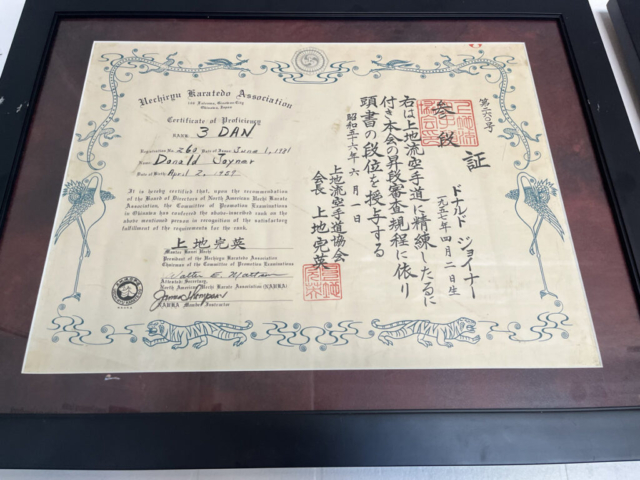 Uechiryu Karatedo Association
166 Futenma, Ginowan City
Okinawa, Japan
Certificate of Proficiency
RANK 3 DAN
Registration No. 260 Date of Issue June 1, 1981
Name Donald Joyner
Date of Birth April 2, 1957
It is hereby certified that, upon the recommendation
of the Board of Directors of North American Uechi Karate
Association, the Committee of Promotion Examinations
in Okinawa has conferred the above-inscribed rank on the
above mentioned person in recognition of the satisfactory
fulfillment of the requirements for the rank.
上地完英
Master Kanei Uechi
President of the Uechiryu Karatedo Association
Chairman of the Committee of Promotion Examinations
Walter E. Mattson
Attested: Secretary,
North American Uechi Karate Association (NAUKA)
James Thompson
NAUKA Member Instructor
第二六〇号
証
参段
ドナルド ジョイナー
一九五七年四月二日生
右は上地流空手道に精練したるに
付き本会の昇段審査規程に依り
頭書の段位を授与する
昭和五十六年六月一日
上地流空手道協会
会長 上地完英